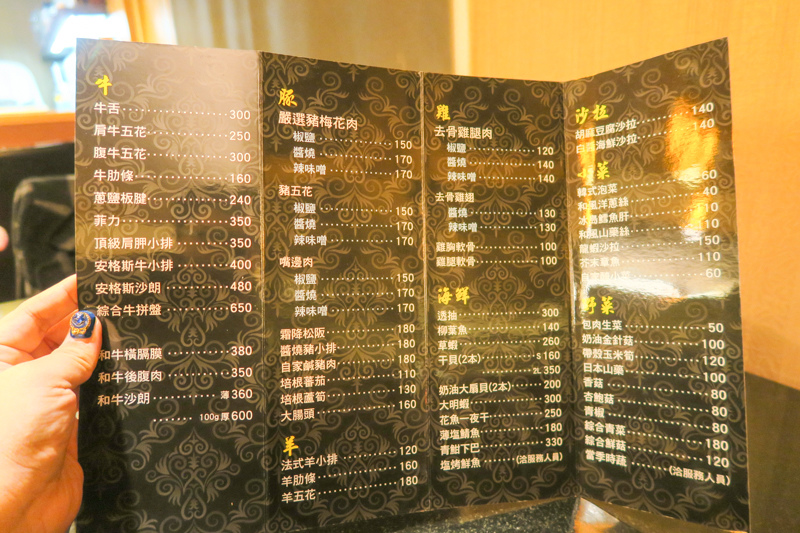 牛
牛舌 300
肩牛五花 250
腹牛五花 300
牛肋條 160
蔥鹽板腱 240
菲力 350
頂級肩胛小排 350
安格斯牛小排 400
安格斯沙朗 480
綜合牛拼盤 650
和牛橫膈膜 380
和牛後腹肉 350
和牛沙朗 薄 360
100g 厚 600
豚
嚴選豬梅花肉
椒鹽 150
醬燒 170
辣味噌 170
豬五花
椒鹽 150
醬燒 170
辣味噌 170
嘴邊肉
椒鹽 150
醬燒 170
辣味噌 170
霜降松阪 180
醬燒豬小排 180
自家鹹豬肉 180
培根蕃茄 110
培根蘆筍 130
大腸頭 160
羊
法式羊小排 120
羊肋條 160
羊五花 180
雞
去骨雞腿肉
椒鹽 120
醬燒 140
辣味噌 140
去骨雞翅
醬燒 130
辣味噌 130
雞胸軟骨 100
雞腿軟骨 100
海鮮
透抽 300
柳葉魚 140
草蝦 260
干貝(2本) S 160
2L 350
奶油大扇貝(2本) 200
大明蝦 300
花魚一夜干 250
薄塩鯖魚 180
青魽下巴 330
塩烤鮮魚 (洽服務人員)
沙拉
胡麻豆腐沙拉 140
海鮮沙拉 140
菜
韓式泡菜 60
和風洋蔥絲 40
冰島鱈魚肝
和風山藥絲
龍蝦沙拉 150
芥末章魚
60
野菜
包肉生菜 50
奶油金針菇 100
帶殼玉米筍 120
日本山藥 100
香菇 80
杏鮑菇 80
青椒 80
綜合青菜 80
綜合鮮菇 180
當季時蔬 120
(洽服務人員)